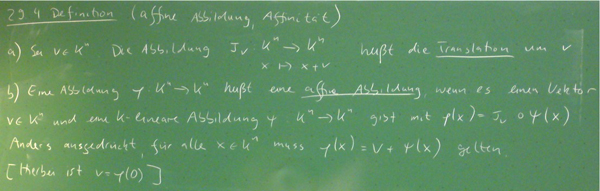 29.4 Definition (affine Abbildung, Affinität)
a) Sei v ∈ K^n Die Abbildung J_v : K^n → K^n heißt die Translation um v
x ↦ x+v
b) Eine Abbildung φ : K^n → K^n heißt eine affine Abbildung, wenn es einen Vektor
v ∈ K^n und eine K-lineare Abbildung ψ : K^n → K^n gibt mit φ(x) = J_v ∘ ψ(x)
Anders ausgedrückt, für alle x ∈ K^n muss φ(x) = v + ψ(x) gelten.
[Hierbei ist v = φ(0)]